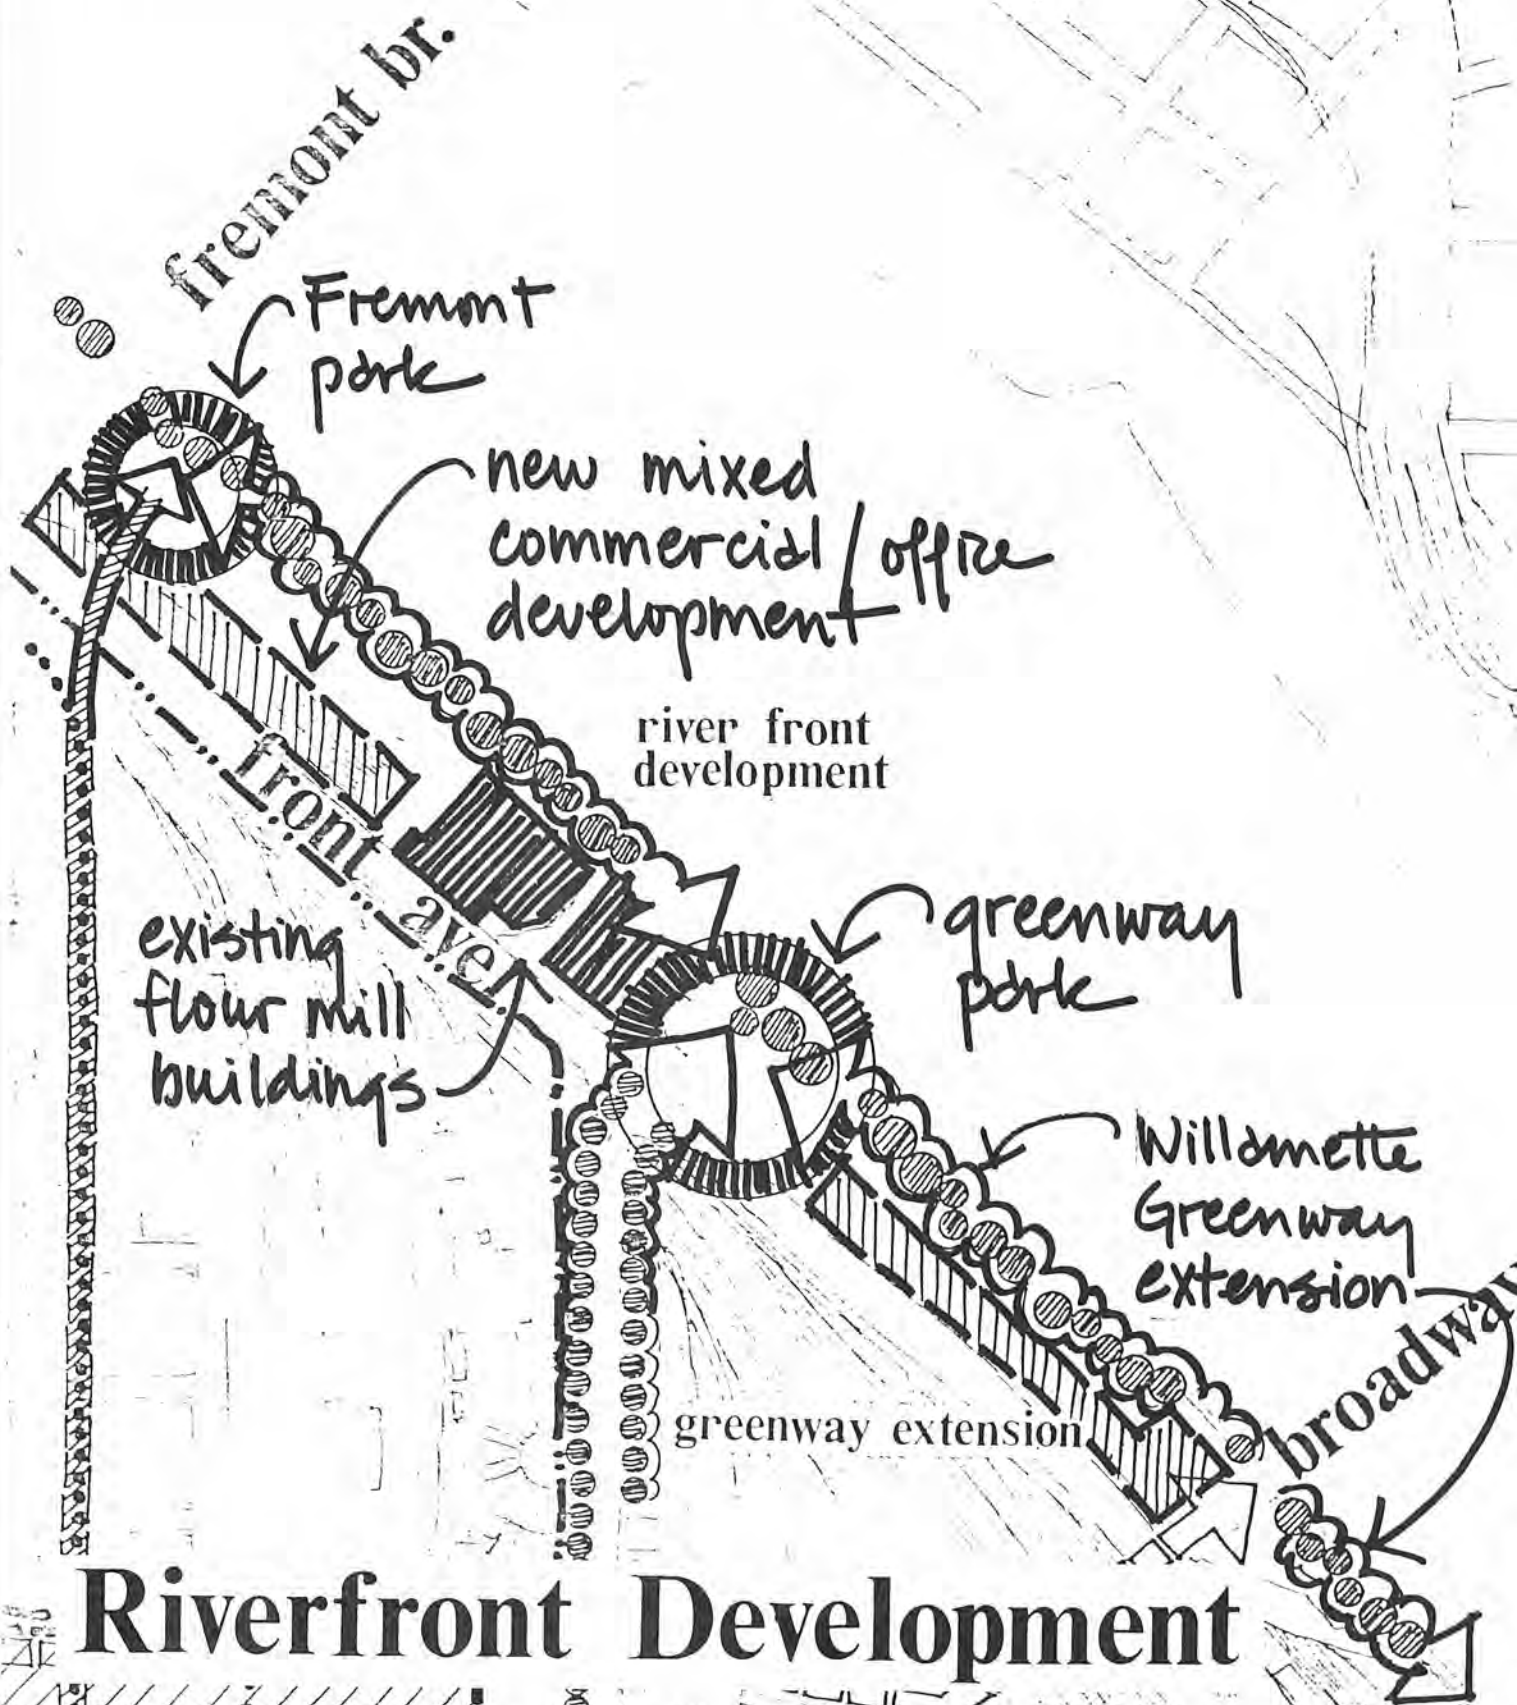 fremont br.
Fremont
park
new mixed
commercial / office
development
river front
development
front ave.
existing
flour mill
buildings
greenway
park
Willamette
Greenway
extension
broadway
greenway extension
Riverfront Development